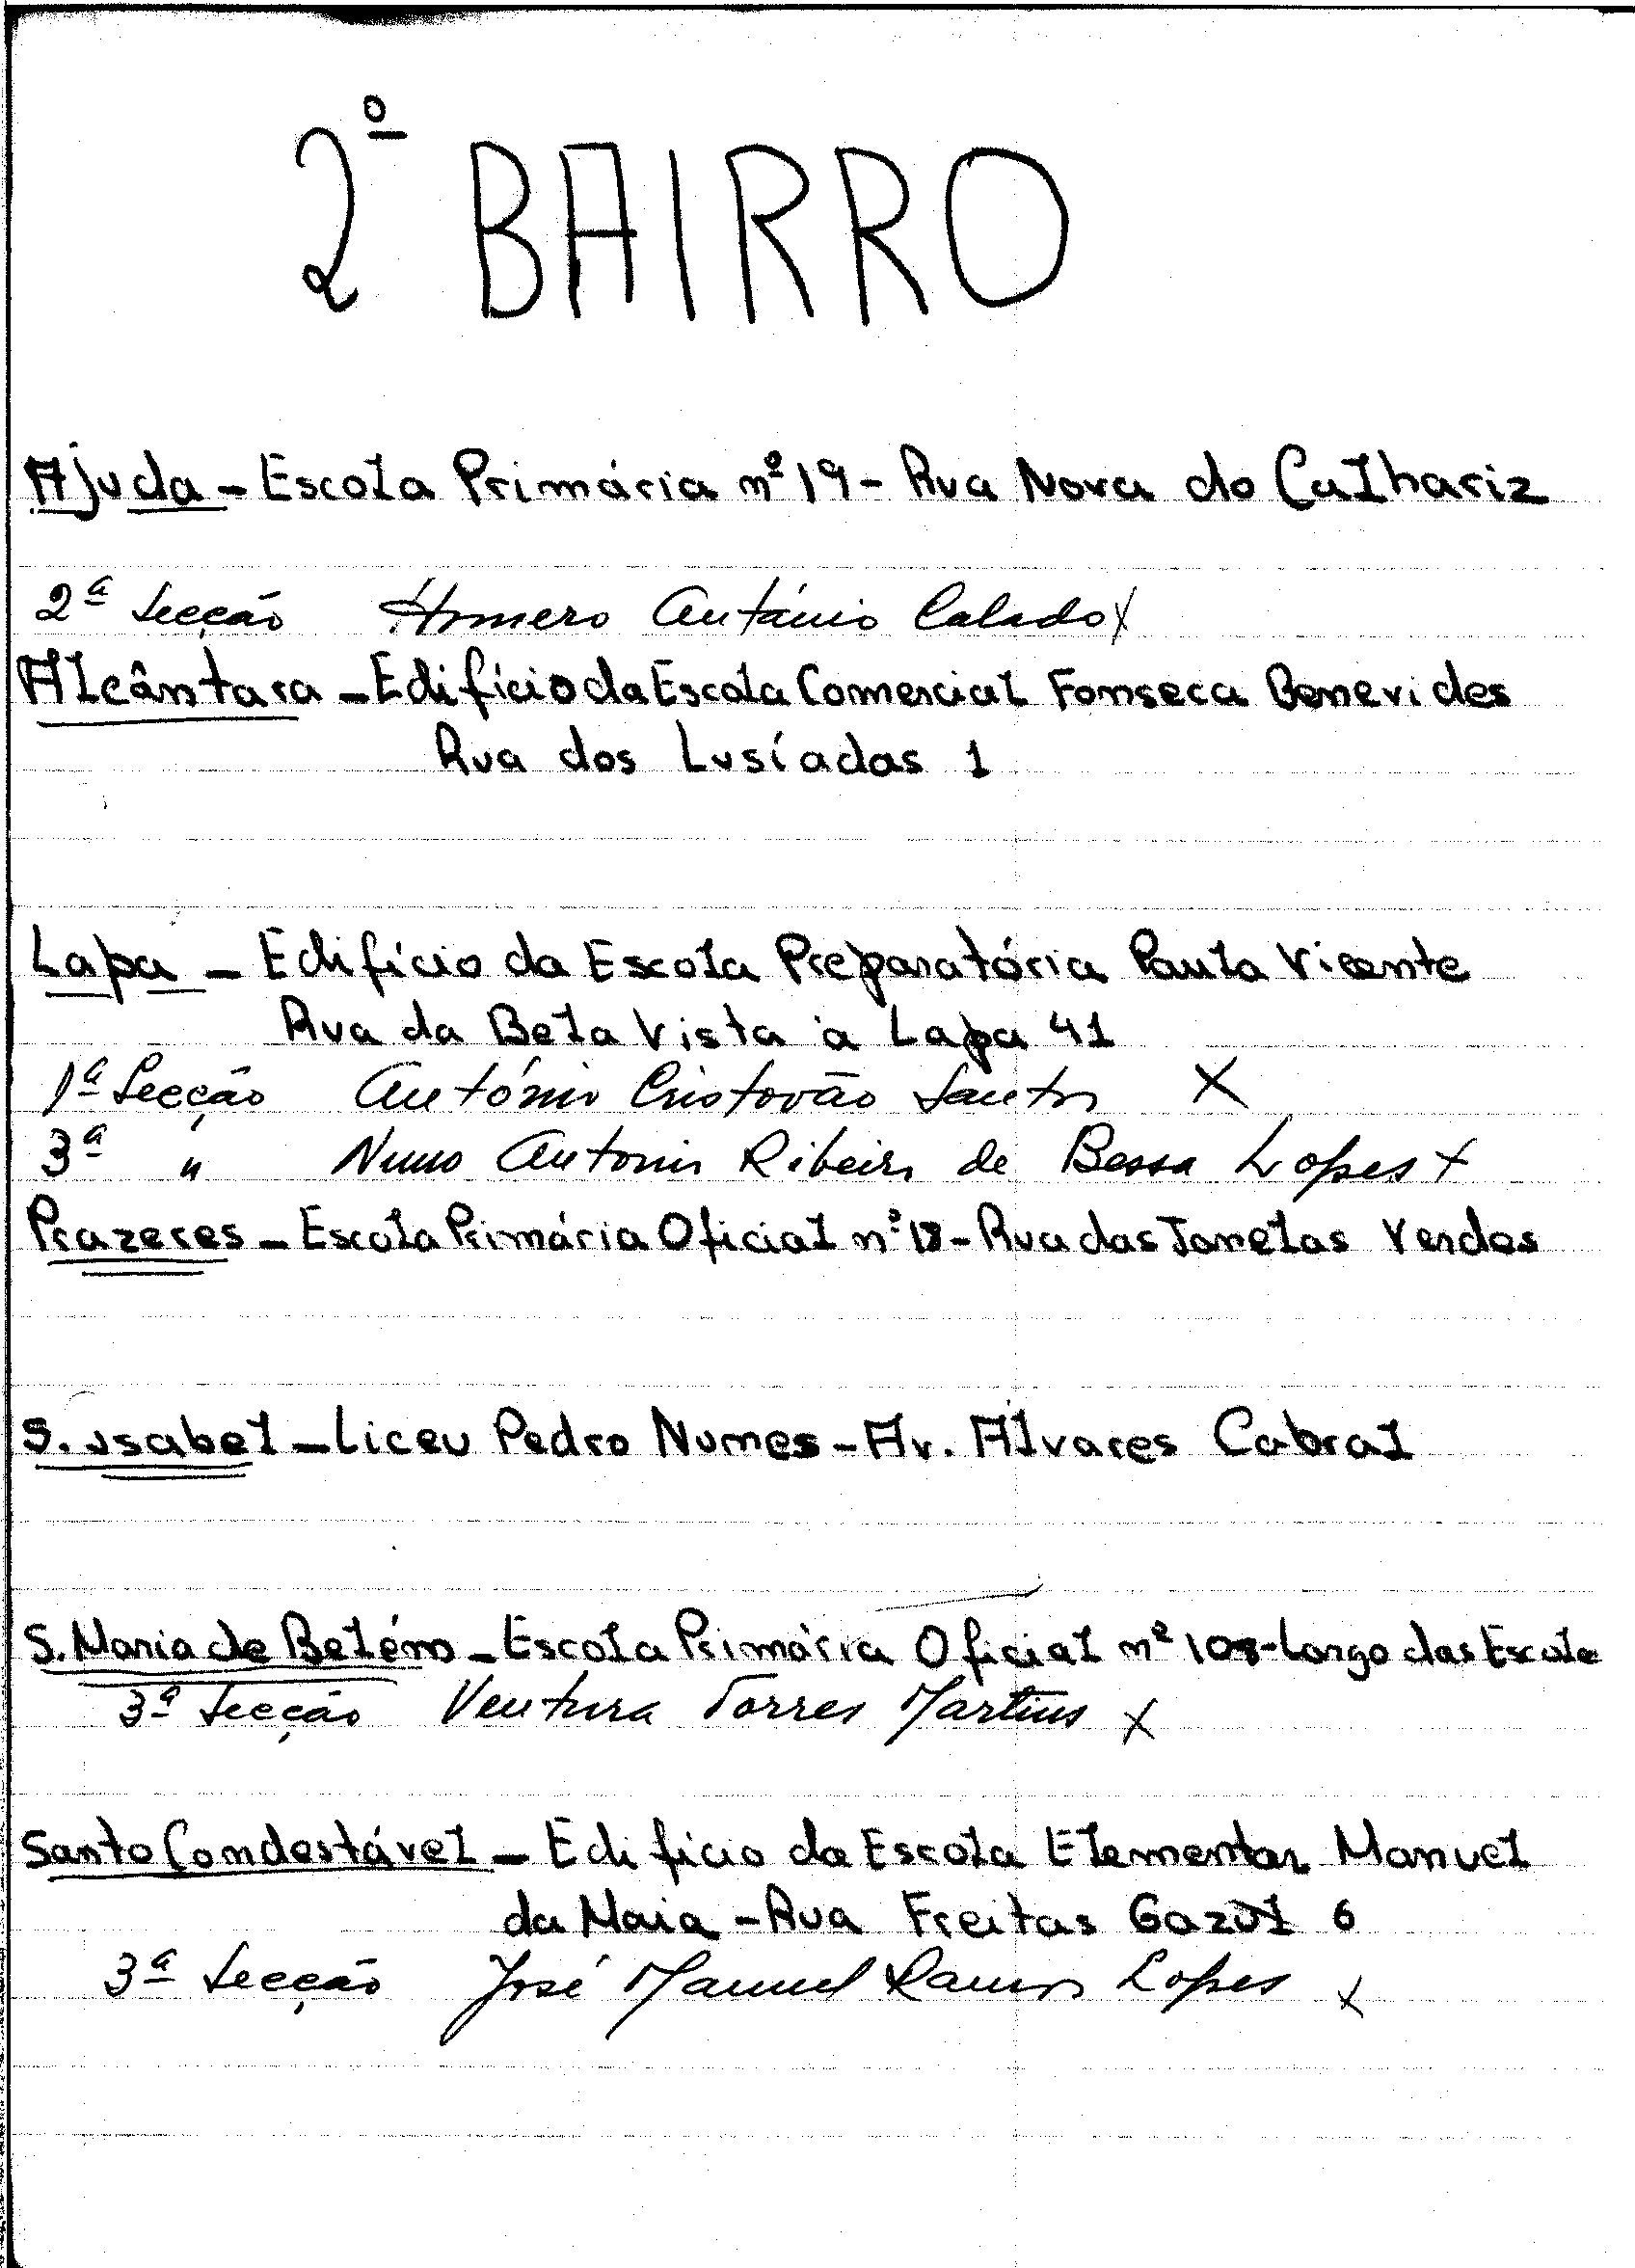 2º BAIRRO
Ajuda - Escola Primária nº 19 - Rua Nova do Calhariz
2ª Secção Homero António Calado X
Alcântara - Edifício da Escola Comercial Fonseca Benevides
Rua dos Lusíadas 1
Lapa - Edifício da Escola Preparatória Paula Vicente
Rua da Bela Vista à Lapa 41
1ª Secção António Cristovão Santos X
3ª " Nuno Antonio Ribeiro de Bessa Lopes X
Prazeres - Escola Primária Oficial nº 18 - Rua das Janelas Verdes
S. Isabel - Liceu Pedro Nunes - Av. Alvares Cabral
S. Maria de Belém - Escola Primária Oficial nº 108 - Largo das Escola
3ª Secção Ventura Torres Martins X
Santo Condestável - Edifício da Escola Elementar Manuel
da Maia - Rua Freitas Gazul 6
3ª Secção José Manuel Ramos Lopes X